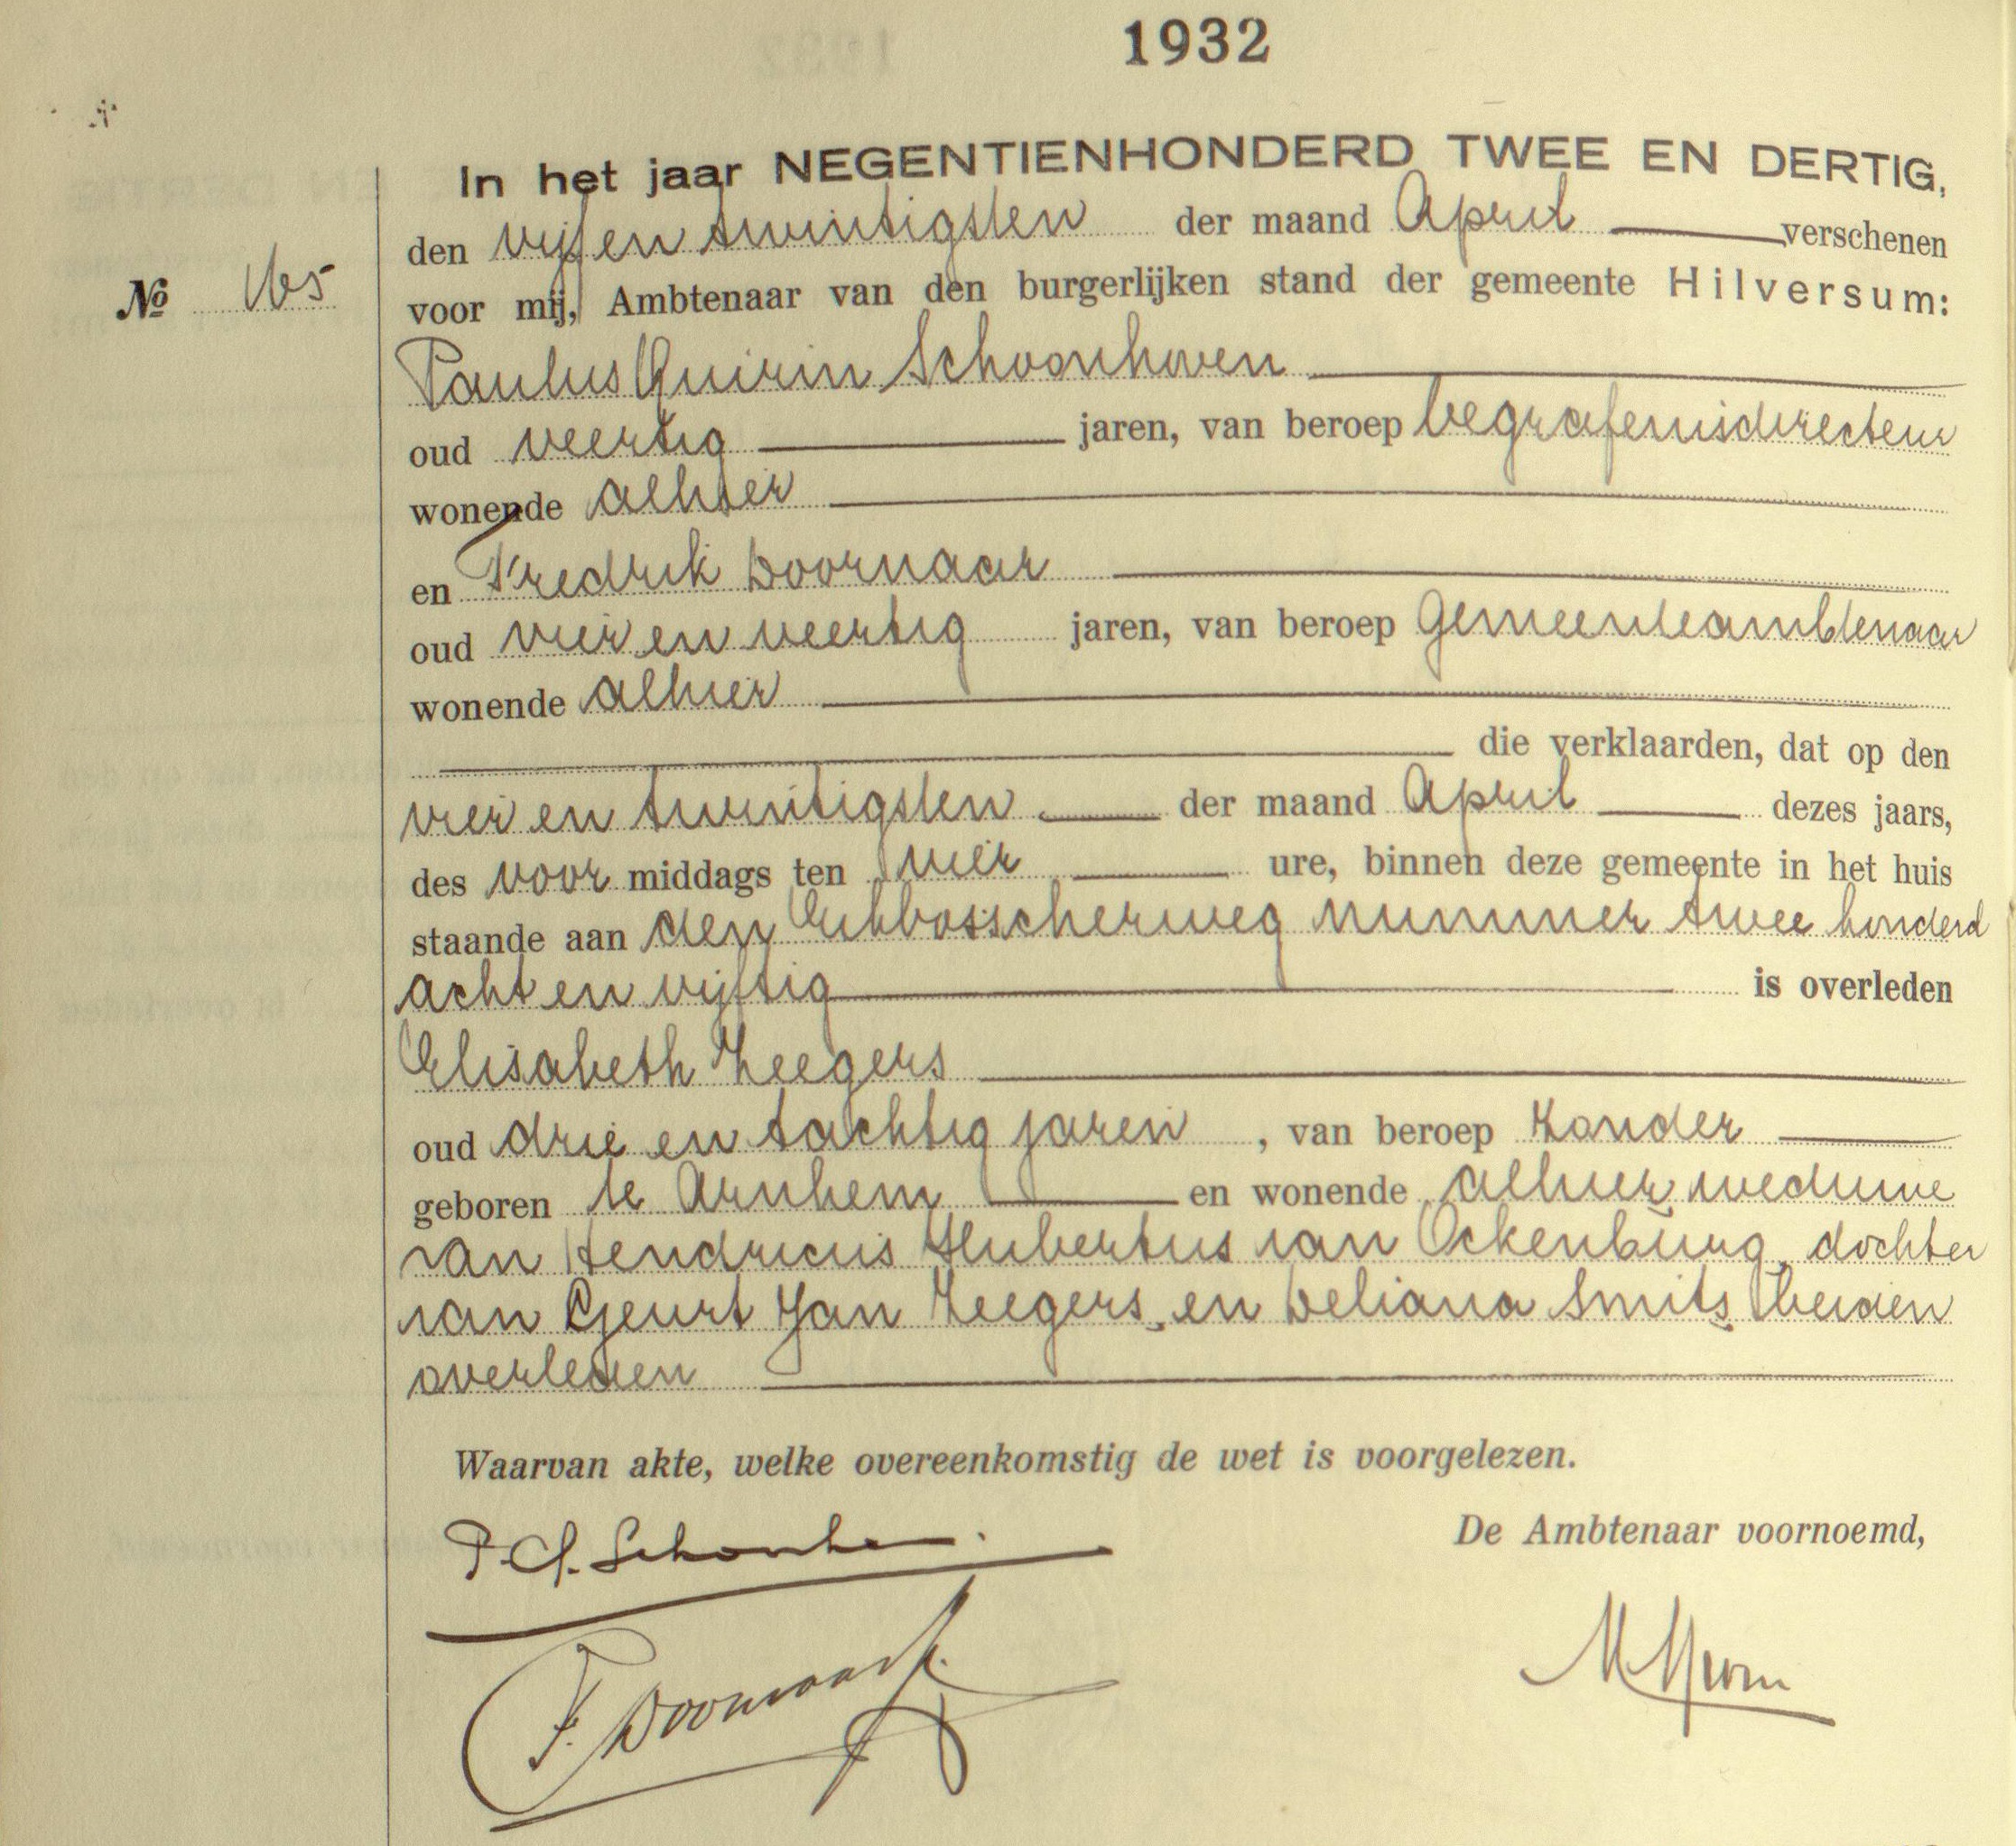 1932
In het jaar NEGENTIENHONDERD TWEE EN DERTIG,
den vijf en twintigsten der maand April verschenen
No 165
voor mij, Ambtenaar van den burgerlijken stand der gemeente Hilversum:
Paulus Quirin Schoonhoven
oud veertig jaren, van beroep begrafenisdirecteur
wonende alhier
en Fredrik Doornaar
oud vier en veertig jaren, van beroep gemeenteambtenaar
wonende alhier
die verklaarden, dat op den
vier en twintigsten der maand April dezes jaars,
des voor middags ten vier ure, binnen deze gemeente in het huis
staande aan den nummer twee honderd
acht en vijftig is overleden
Elisabeth Zeegers
oud drie en tachtig jaren , van beroep zonder
geboren te Arnhem en wonende alhier weduwe
van Hendricus Hubertus van Ockenburg, dochter
van Geurt Jan Zeegers, en Deliana Smits, beiden
overleden
Waarvan akte, welke overeenkomstig de wet is voorgelezen.
De Ambtenaar voornoemd,
F. Doornaar